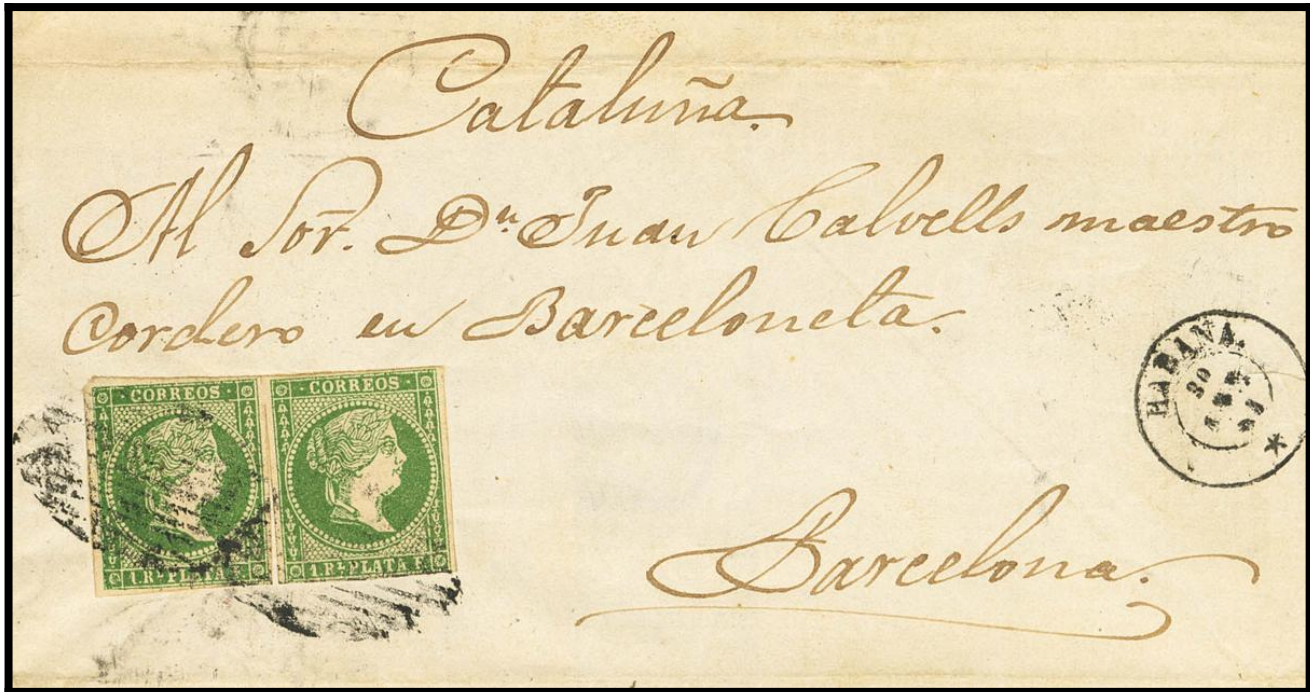 Cataluña.
Al Sor. Dn Juan Calvells maestro
Cordero en Barceloneta.
CORREOS
CORREOS
1 RL PLATA F.
1 RL PLATA F.
HABANA.
30
Barcelona.